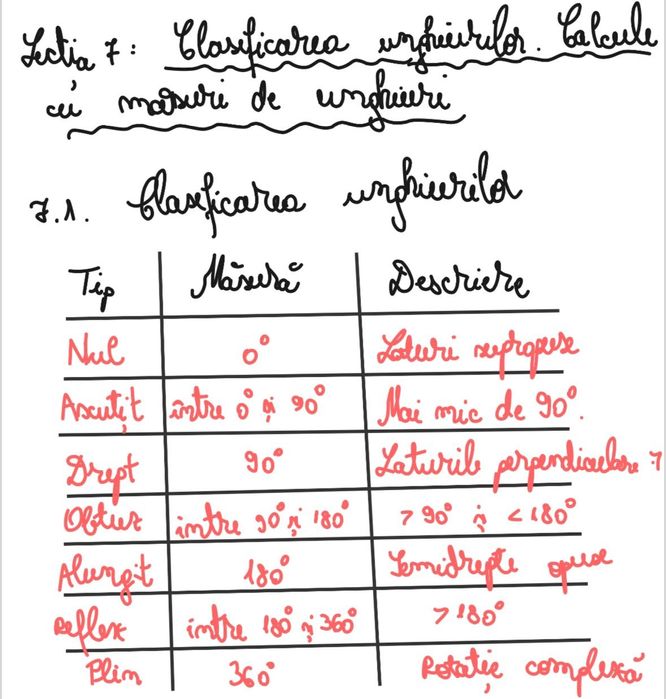 Lecția 7: Clasificarea unghiurilor. Calcule
cu măsuri de unghiuri
7.1. Clasificarea unghiurilor
Tip Măsură Descriere
Nul 0° Laturi suprapuse
Ascuțit între 0° și 90° Mai mic de 90°.
Drept 90° Laturile perpendiculare
Obtuz între 90° și 180° > 90° și < 180°
Alungit 180° Semidrepte opuse
Reflex între 180° și 360° > 180°
Plin 360° Rotație complexă